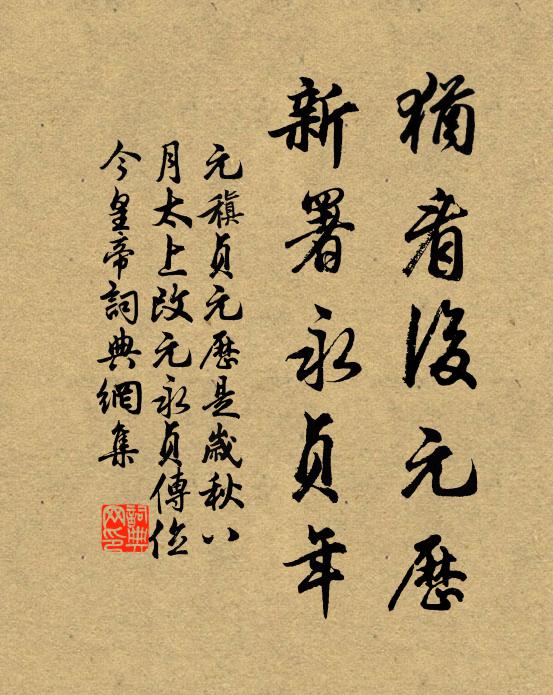 猶看後元歷
新署永貞年
元稹貞元歷是歲秋八
月太上改元永貞傳位
今皇帝詞典網集
詞典
网印